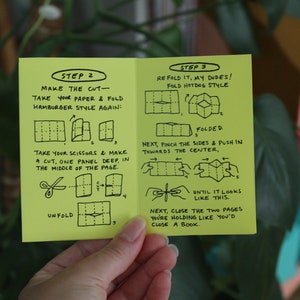 STEP 2
MAKE THE CUT—
TAKE YOUR PAPER & FOLD
HAMBURGER STYLE AGAIN:
TAKE YOUR SCISSORS & MAKE
A CUT, ONE PANEL DEEP, IN
THE MIDDLE OF THE PAGE.
UNFOLD
STEP 3
REFOLD IT, MY DUDES!
FOLD HOTDOG STYLE
FOLDED
NEXT, PINCH THE SIDES & PUSH IN
TOWARDS THE CENTER,
UNTIL IT LOOKS
LIKE THIS.
NEXT, CLOSE THE TWO PAGES
YOU'RE HOLDING LIKE YOU'D
CLOSE A BOOK.